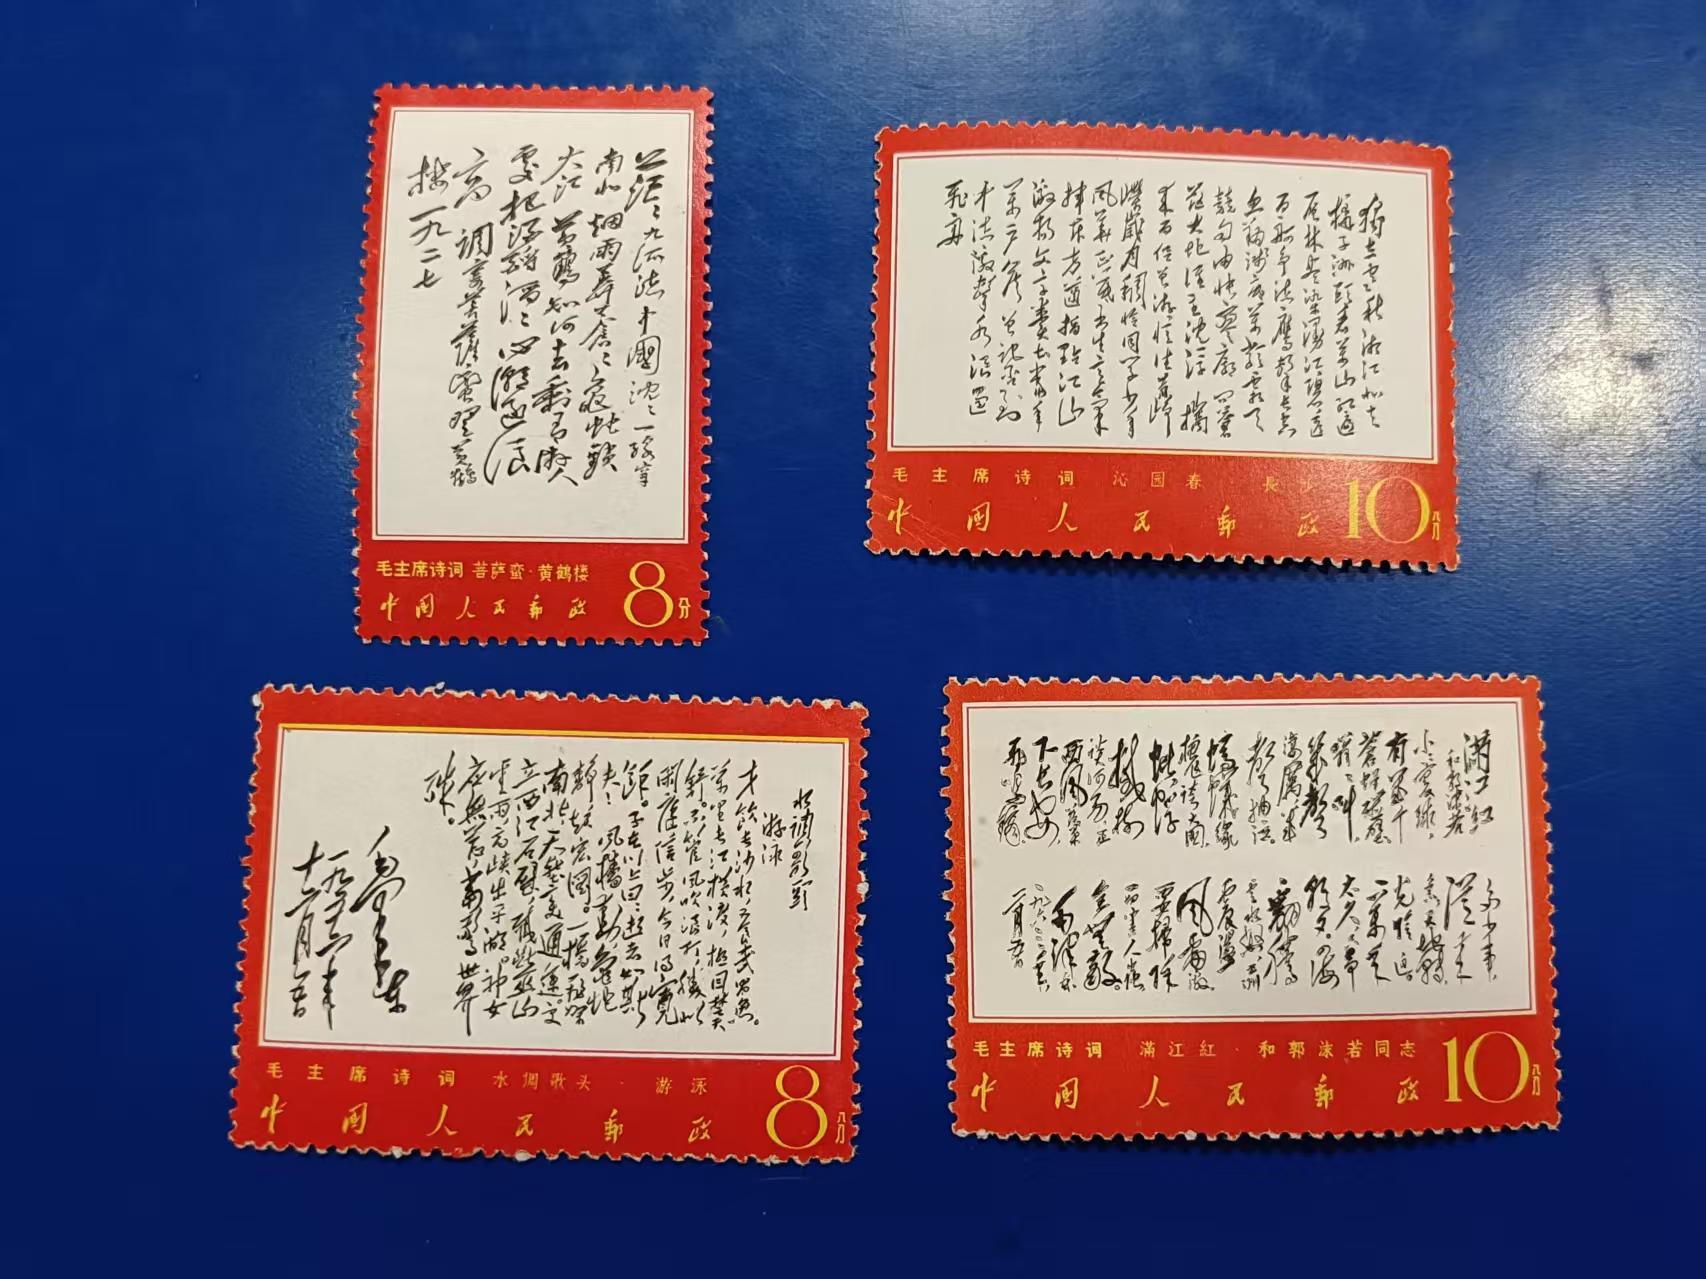 茫茫九派流中國沈沈一線穿
南北烟雨莽苍苍龟蛇鎖
大江 黄鹤知何去剩有游人
處把酒酹滔滔心潮逐浪
高 調寄菩薩蠻 登黄鹤
楼 一九二七
毛主席诗词 菩萨蛮·黄鹤楼
中国人民邮政
8分
獨立寒秋湘江北去
橘子洲頭看萬山红遍
层林尽染漫江碧透
百舸争流鹰擊長空
魚翔浅底萬類霜天
競自由怅寥廓问苍
茫大地谁主沈浮 携
来百侣曾游忆往昔峥
嵘歲月稠恰同学少年
风華正茂书生意氣
挥斥方遒指點江山
激揚文字糞土当年
萬户侯 曾记否到
中流激擊水浪遏
飛舟
毛主席诗词 沁园春·長沙
中国人民邮政
10分
水調歌頭
游泳
才飲長沙水，又食武昌魚。
萬里長江横渡，極目楚天
舒。不管风吹浪打，勝似
闲庭信步，今日得寬
餘。子在川上曰：逝者如斯
夫！风檣動，龟蛇
静，起宏圖。一橋飛架
南北，天塹变通途。更
立西江石壁，截断巫山
雲雨，高峡出平湖。神女
應無恙，當驚世界
殊。
毛澤東
一九五六年
十二月五日
毛主席诗词 水调歌头·游泳
中国人民邮政
8分
满江红
和郭沫若
小小寰球，
有幾個
苍蝇碰壁。
嗡嗡叫，
幾聲
凄厲，幾
聲抽泣。
蚂蟻缘
槐誇大國，
蚍蜉
撼樹
談何易。正
西风落葉
下長安，
飛鳴鏑。
多少事，
從来
急；天地轉，
光陰迫。
一萬年
太久，只争
朝夕。四海
翻騰
雲水怒，五洲
震盪
风雷激。
要掃除
一切害人虫，
全無敵。
毛澤東
一九六三年
一月九日
毛主席诗词 滿江紅·和郭沫若同志
中国人民邮政
10分